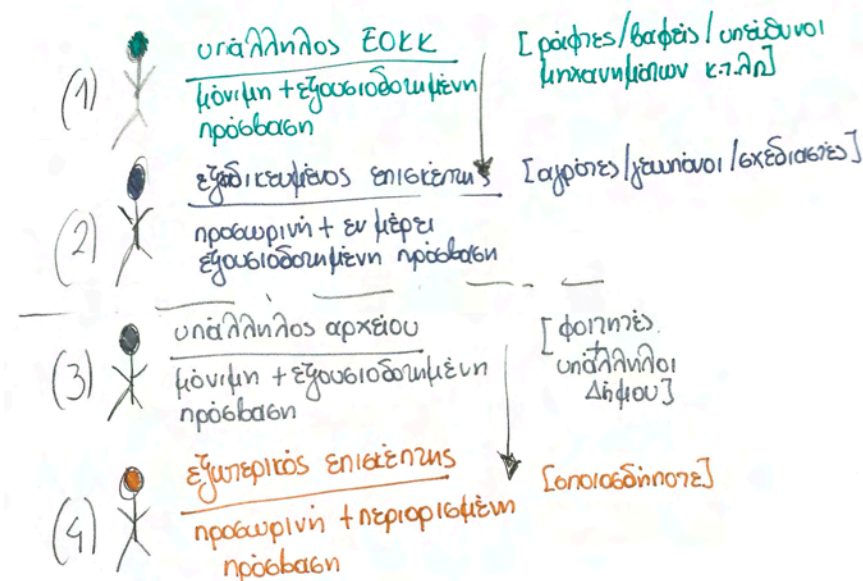 (1)
υπάλληλος ΕΟΚΚ
μόνιμη + εξουσιοδοτημένη
πρόσβαση
[ράφτες/βαφείς/υπεύθυνοι
μηχανημάτων κ.τ.λπ]
(2)
εξειδικευμένος επισκέπτης
προσωρινή + εν μέρει
εξουσιοδοτημένη πρόσβαση
[αγρότες/γεωπόνοι/σχεδιαστές]
(3)
υπάλληλος αρχείου
μόνιμη + εξουσιοδοτημένη
πρόσβαση
[φοιτητές
+
υπάλληλοι
Δήμου]
(4)
εξωτερικός επισκέπτης
προσωρινή + περιορισμένη
πρόσβαση
[οποιοσδήποτε]